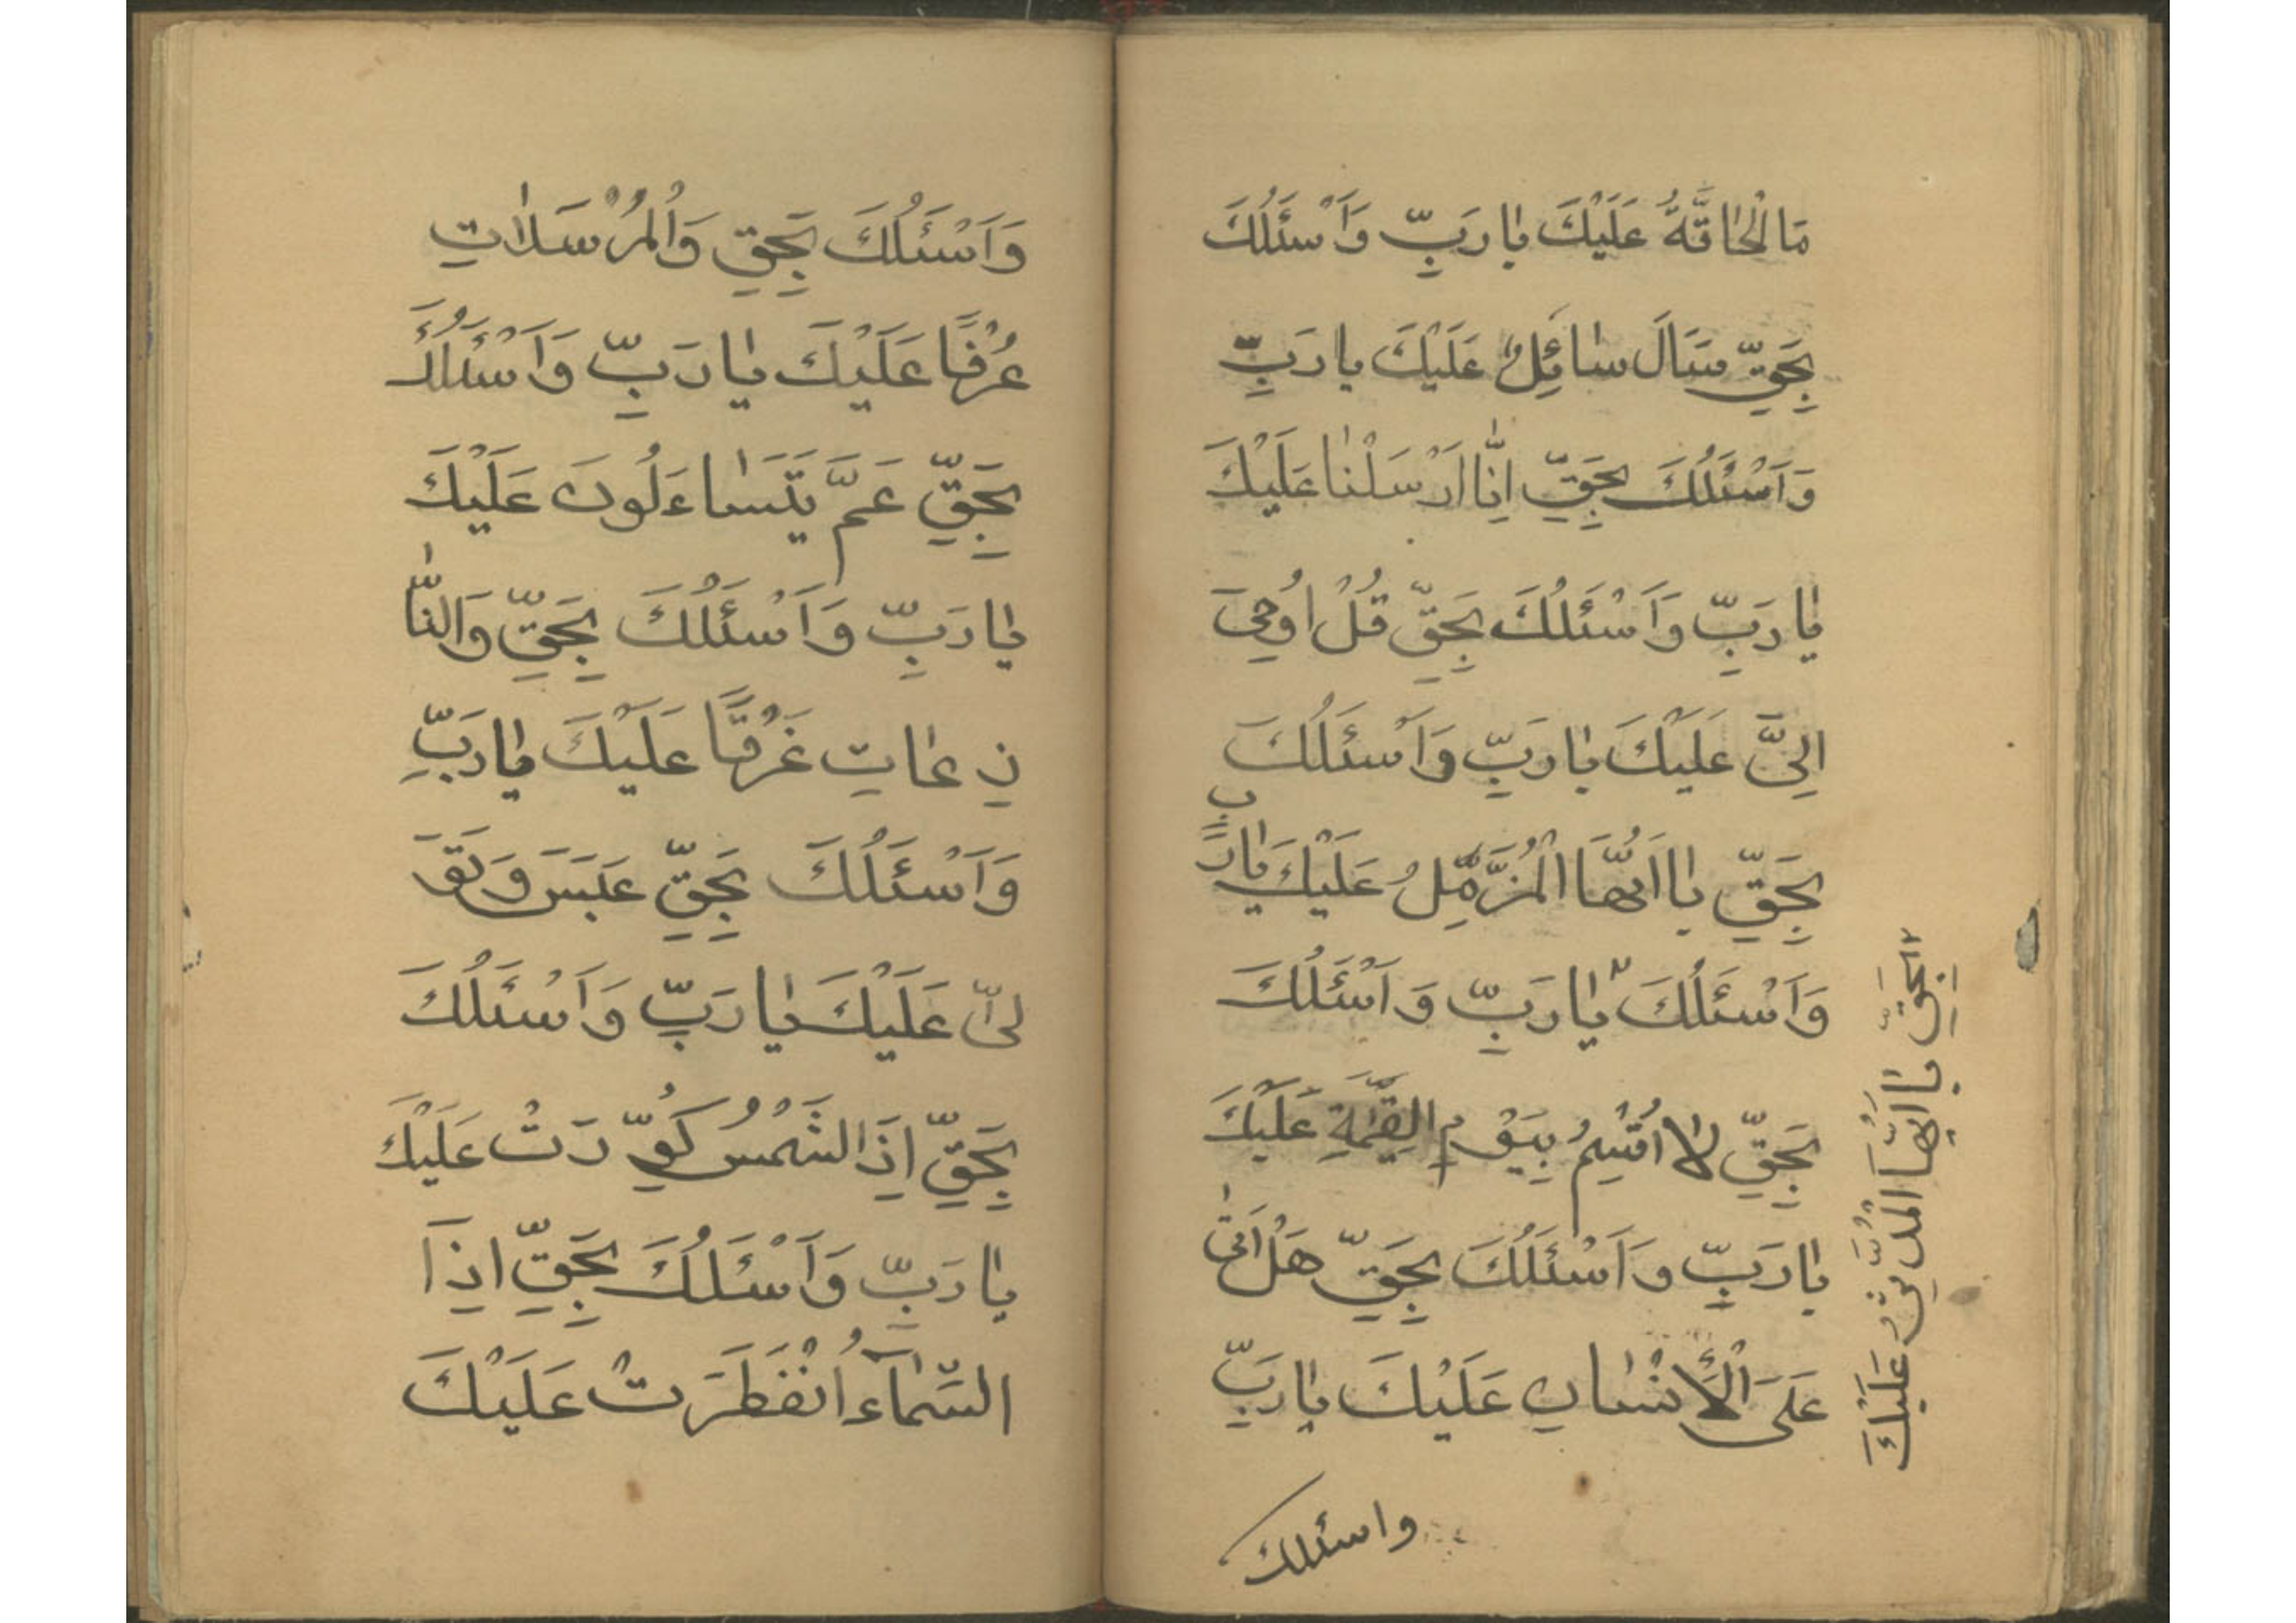 مَا لْحٰاقَّةُ عَلَيْكَ يٰا رَبِّ وَاَسْئَلُكَ
بِحَقِّ سَاَلَ سٰائِلٌ عَلَيْكَ يا رَبِّ
وَاَسْئَلُكَ بِحَقِّ اِنّٰا اَرْسَلْنٰا عَلَيْكَ
يٰا رَبِّ وَاَسْئَلُكَ بِحَقِّ قُلْ اُوحِىَ
اِلَىَّ عَلَيْكَ يٰا رَبِّ وَاَسْئَلُكَ
بِحَقِّ يٰا اَيُّهَا الْمُزَّمِّلُ عَلَيْكَ يٰا رَبِّ
وَاَسْئَلُكَ يٰا رَبِّ وَ اَسْئَلُكَ
بِحَقِّ لٰا اُقْسِمُ بِيَوْمِ الْقِيٰمَةِ عَلَيْكَ
يٰا رَبِّ وَاَسْئَلُكَ بِحَقِّ هَلْ اَتىٰ
عَلَى الْأِنْسٰانِ عَلَيْكَ يٰا رَبِّ
واسئلك
بِحَقِّ يٰا اَيُّهَا الْمُدَّثِّرُ عَلَيْكَ
وَاَسْئَلُكَ بِحَقِّ وَالْمُرْسَلٰاتِ
عُرْفًا عَلَيْكَ يٰا رَبِّ وَاَسْئَلُكَ
بِحَقِّ عَمَّ يَتَسٰاءَلُونَ عَلَيْكَ
يٰا رَبِّ وَاَسْئَلُكَ بِحَقِّ وَالنّٰا
زِعٰاتِ غَرْقًا عَلَيْكَ يٰا رَبِّ
وَاَسْئَلُكَ بِحَقِّ عَبَسَ وَتَوَ
لىّٰ عَلَيْكَ يٰا رَبِّ وَاَسْئَلُكَ
بِحَقِّ اِذَا الشَّمْسُ كُوِّرَتْ عَلَيْكَ
يٰا رَبِّ وَاَسْئَلُكَ بِحَقِّ اِذَا
السَّمٰاءُ انْفَطَرَتْ عَلَيْكَ